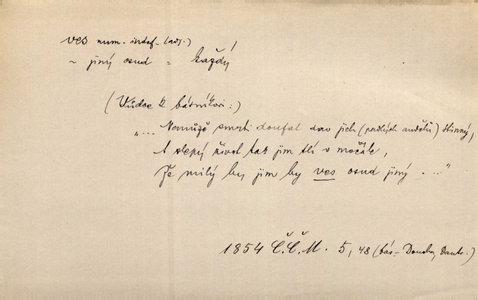 ves num. indef. (adj.)
~ jiný osud = každý
(Vůdce k básníkovi:)
"... Nemůžě smrti doufat dav jich (padlých andělů) stinný,
A slepý život tak jim tlí v močále,
Že milý by jim by ves osud jiný ..."
1854 Č.Č.M. 5, 48 (bás- Doucha, Dante.)